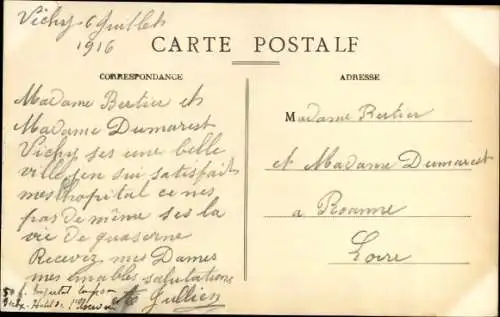 Vichy 6 Juillet
1916
CARTE POSTALE
CORRESPONDANCE
ADRESSE
Madame Bertier et
Madame Dumarest
Vichy ses une belle
ville jen sui satisfait
mes hopital ce nes
pas de même ses la
vie de quaserne
Recevez mes Dames
mes amables salutations
Jullien
Madame Bertier
et Madame Dumarest
a Roanne
Loire